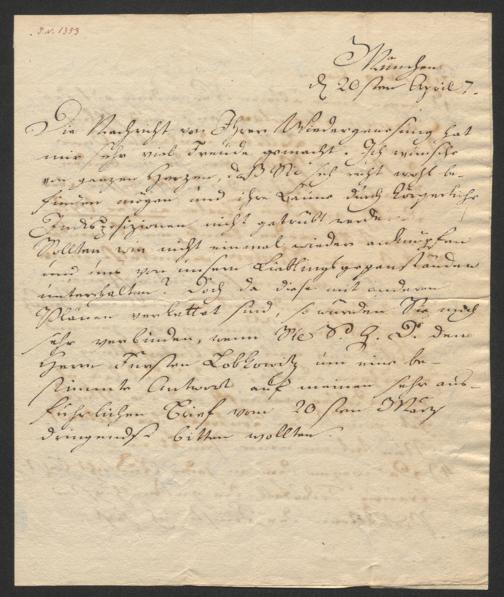 I.N. 1353
München
d. 20sten April 7.
Die Nachricht von Ihrer Wiedergenesung hat
mir sehr viel Freude gemacht. Ich wünsche
von ganzen Herzen, daß Sie sich recht wohl be-
finden mögen und ihre Laune durch körperliche
Indisposizionen nicht getrübt werde.
Sollten wir nicht einmal wieder anknüpfen
und uns von unsern Lieblingsgegenständen
unterhalten? Doch da diese mit anderen
Plänen verkettet sind, so würden Sie mich
sehr verbinden, wenn Sie S. D. den
Herrn Fürsten Lobkowitz um eine be-
stimmte Antwort auf meinen sehr aus-
führlichen Brief vom 20sten März
dringendst bitten wollten.